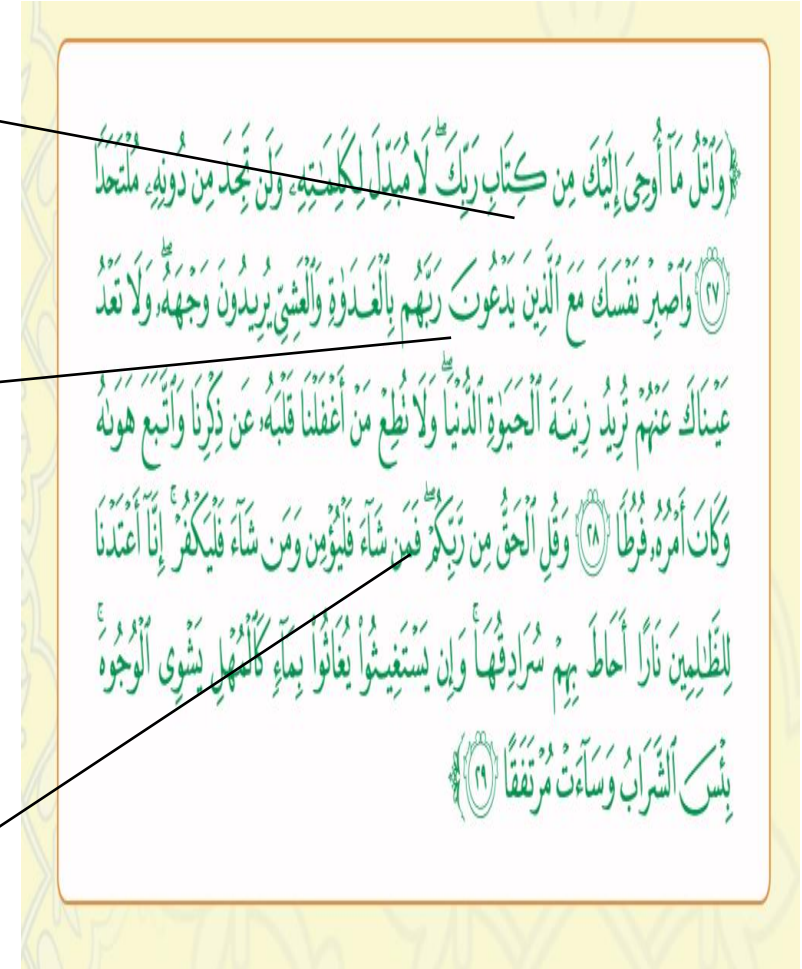 ﴿وَٱتْلُ مَآ أُوحِىَ إِلَيْكَ مِن كِتَابِ رَبِّكَ ۖ لَا مُبَدِّلَ لِكَلِمَـٰتِهِۦ وَلَن تَجِدَ مِن دُونِهِۦ مُلْتَحَدًا
٢٧ وَٱصْبِرْ نَفْسَكَ مَعَ ٱلَّذِينَ يَدْعُونَ رَبَّهُم بِٱلْغَدَوٰةِ وَٱلْعَشِىِّ يُرِيدُونَ وَجْهَهُۥ ۖ وَلَا تَعْدُ
عَيْنَاكَ عَنْهُمْ تُرِيدُ زِينَةَ ٱلْحَيَوٰةِ ٱلدُّنْيَا ۖ وَلَا نُطِعْ مَنْ أَغْفَلْنَا قَلْبَهُۥ عَن ذِكْرِنَا وَٱتَّبَعَ هَوَىٰهُ
وَكَانَ أَمْرُهُۥ فُرُطًا ٢٨ وَقُلِ ٱلْحَقُّ مِن رَّبِّكُمْ ۖ فَمَن شَآءَ فَلْيُؤْمِن وَمَن شَآءَ فَلْيَكْفُرْ ۚ إِنَّآ أَعْتَدْنَا
لِلظَّـٰلِمِينَ نَارًا أَحَاطَ بِهِمْ سُرَادِقُهَا ۚ وَإِن يَسْتَغِيثُوا۟ يُغَاثُوا۟ بِمَآءٍ كَٱلْمُهْلِ يَشْوِى ٱلْوُجُوهَ ۚ
بِئْسَ ٱلشَّرَابُ وَسَآءَتْ مُرْتَفَقًا ٢٩﴾